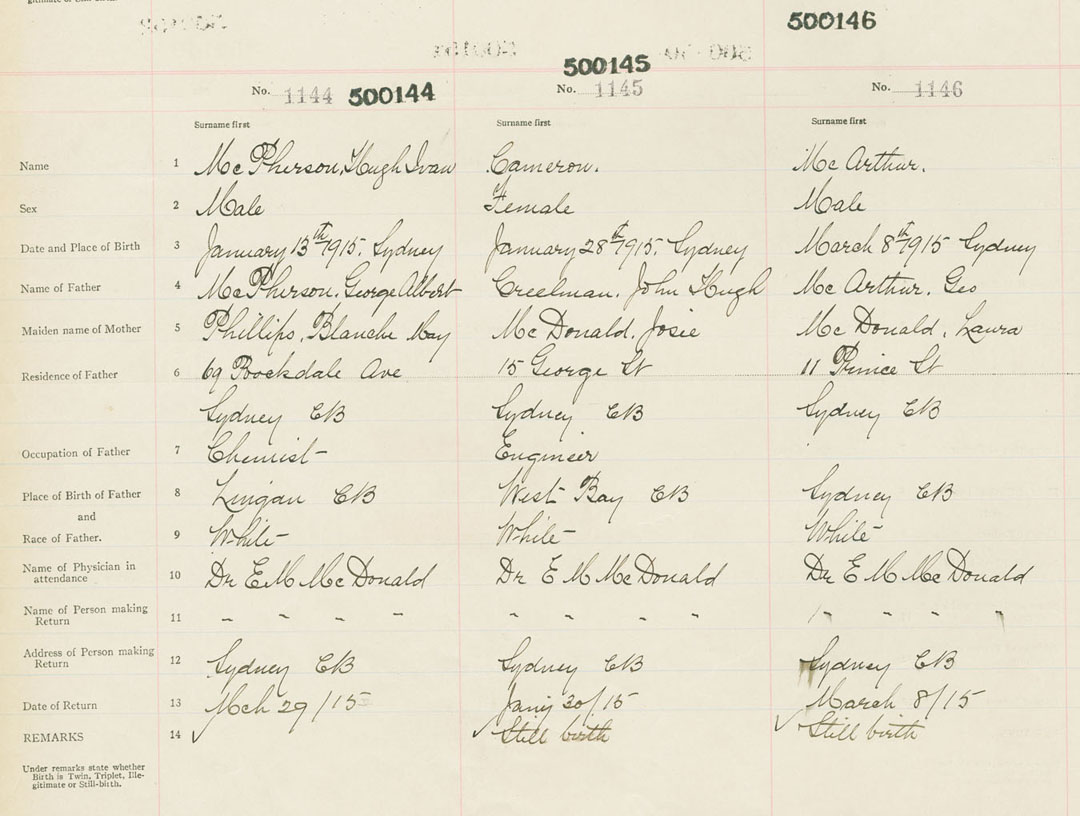 500146
500145
No. 1144 500144 No. 1145 No. 1146
Surname first Surname first Surname first
Name 1 McPherson, Hugh Ivan Cameron. McArthur.
Sex 2 Male Female Male
Date and Place of Birth 3 January 13th 1915. Sydney January 28th 1915. Sydney March 8th 1915 Sydney
Name of Father 4 McPherson, George Albert Creelman, John Hugh McArthur, Geo
Maiden name of Mother 5 Phillips, Blanche May McDonald, Josie McDonald, Laura
Residence of Father 6 69 Rockdale Ave 15 George St 11 Prince St
Sydney CB Sydney CB Sydney CB
Occupation of Father 7 Chemist Engineer
Place of Birth of Father 8 Lingan CB West Bay CB Sydney CB
and
Race of Father. 9 White White White
Name of Physician in attendance 10 Dr E M McDonald Dr E M McDonald Dr E M McDonald
Name of Person making Return 11 " " " " " " " " " " " "
Address of Person making Return 12 Sydney CB Sydney CB Sydney CB
Date of Return 13 Mch 29/15 Jany 30/15 March 8/15
REMARKS 14 ✓ ✓ Still birth ✓ Still birth
Under remarks state whether
Birth is Twin, Triplet, Ille-
gitimate or Still-birth.